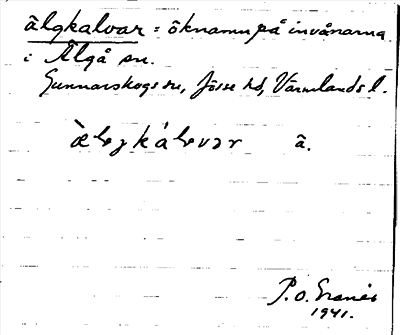 älgkalvar = öknamn på invånarna
i Älgå sn.
Gunnarskogs sn, Jösse hd, Värmlands l.
ä.
P. O.
1941.